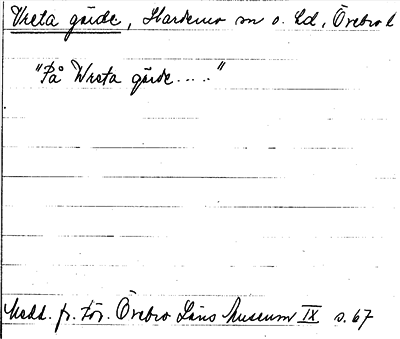 Vreta gärde, Hardemo sn o. hd, Örebro l
"På Wreta gärde....."
Medd. fr. För. Örebro Läns museum IX s. 67